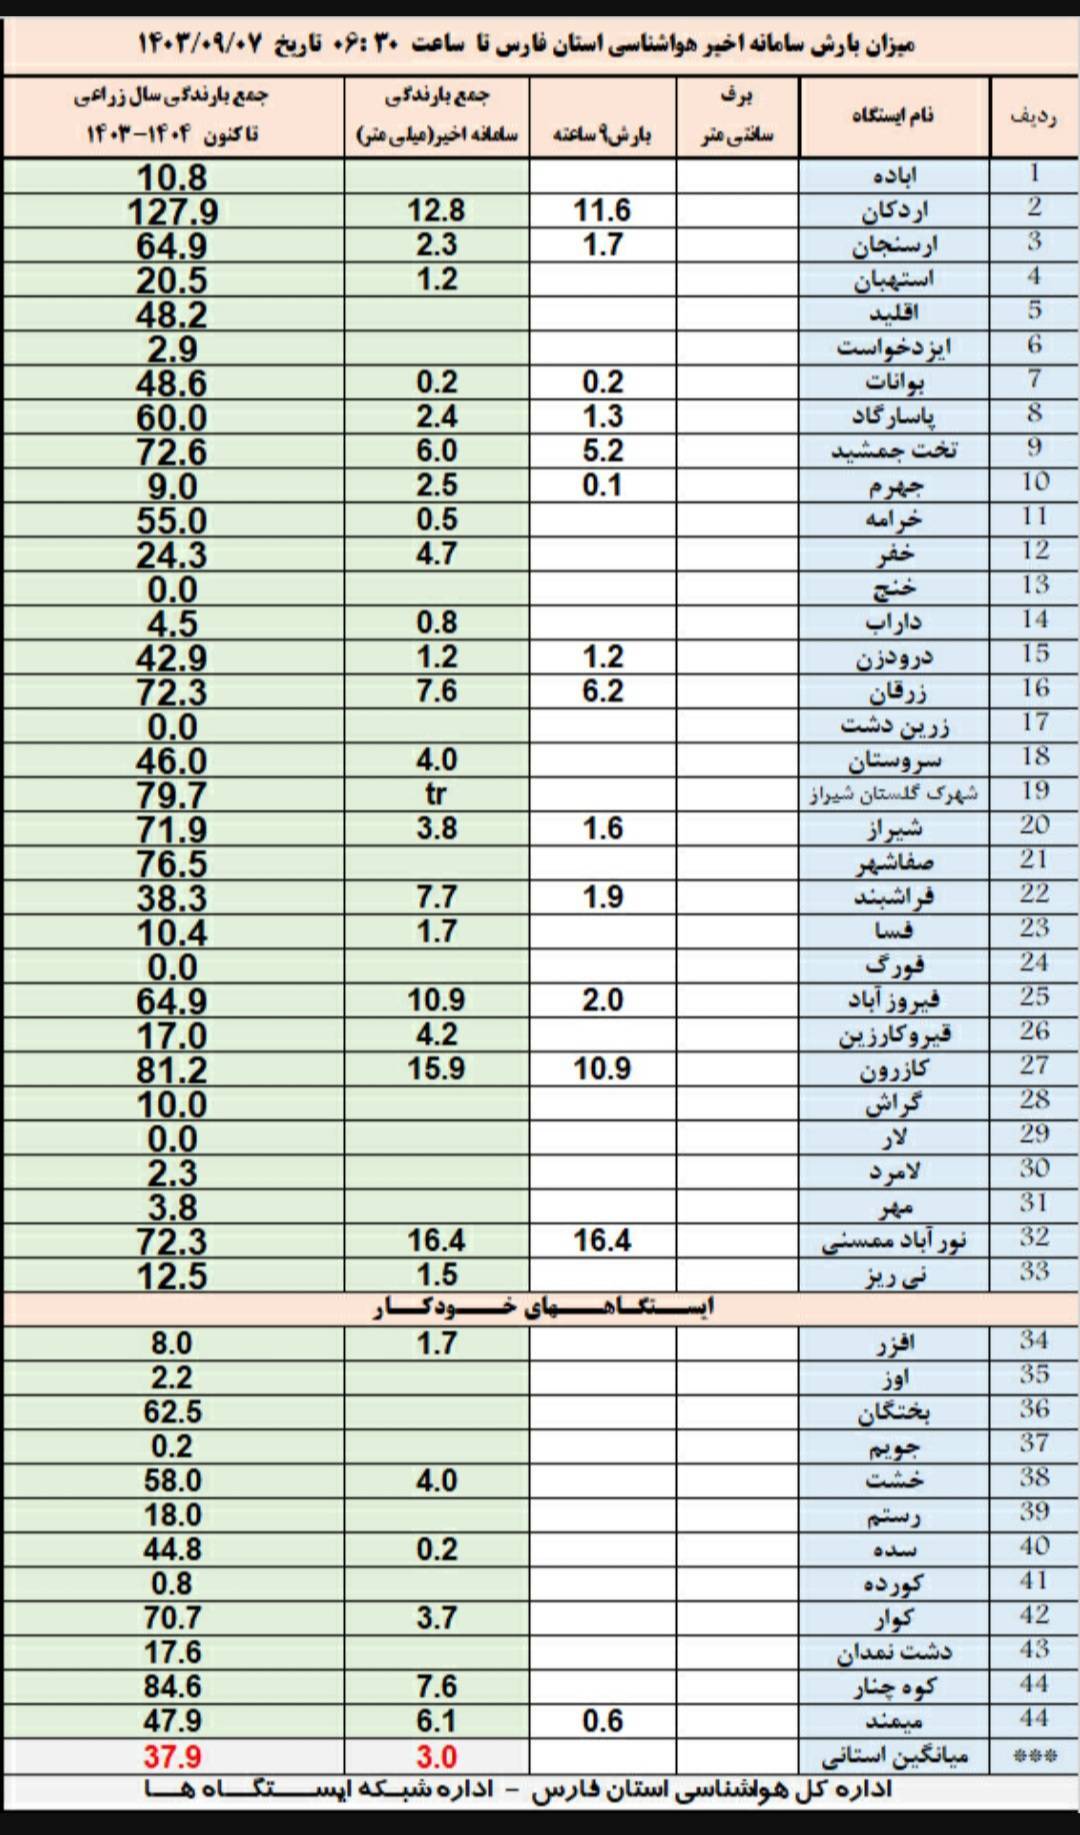 میزان بارش سامانه اخیر هواشناسی استان فارس تا ساعت ۰۶:۳۰ تاریخ ۱۴۰۳/۰۹/۰۷
ردیف نام ایستگاه برف سانتی متر بارش۹ ساعته جمع بارندگی سامانه اخیر(میلی متر) جمع بارندگی سال زراعی تاکنون ۱۴۰۴-۱۴۰۳
1 اباده 10.8
2 اردکان 11.6 12.8 127.9
3 ارسنجان 1.7 2.3 64.9
4 استهبان 1.2 20.5
5 اقلید 48.2
6 ایزدخواست 2.9
7 بوانات 0.2 0.2 48.6
8 پاسارگاد 1.3 2.4 60.0
9 تخت جمشید 5.2 6.0 72.6
10 جهرم 0.1 2.5 9.0
11 خرامه 0.5 55.0
12 خفر 4.7 24.3
13 خنج 0.0
14 داراب 0.8 4.5
15 درودزن 1.2 1.2 42.9
16 زرقان 6.2 7.6 72.3
17 زرین دشت 0.0
18 سروستان 4.0 46.0
19 شهرک گلستان شیراز tr 79.7
20 شیراز 1.6 3.8 71.9
21 صفاشهر 76.5
22 فراشبند 1.9 7.7 38.3
23 فسا 1.7 10.4
24 فورگ 0.0
25 فیروزآباد 2.0 10.9 64.9
26 قیروکارزین 4.2 17.0
27 کازرون 10.9 15.9 81.2
28 گراش 10.0
29 لار 0.0
30 لامرد 2.3
31 مهر 3.8
32 نورآباد ممسنی 16.4 16.4 72.3
33 نی ریز 1.5 12.5
ایستگاههای خودکار
34 افزر 1.7 8.0
35 اوز 2.2
36 بختگان 62.5
37 جویم 0.2
38 خشت 4.0 58.0
39 رستم 18.0
40 سده 0.2 44.8
41 کورده 0.8
42 کوار 3.7 70.7
43 دشت نمدان 17.6
44 کوه چنار 7.6 84.6
44 میمند 0.6 6.1 47.9
*** میانگین استانی 3.0 37.9
اداره کل هواشناسی استان فارس - اداره شبکه ایستگاه ها